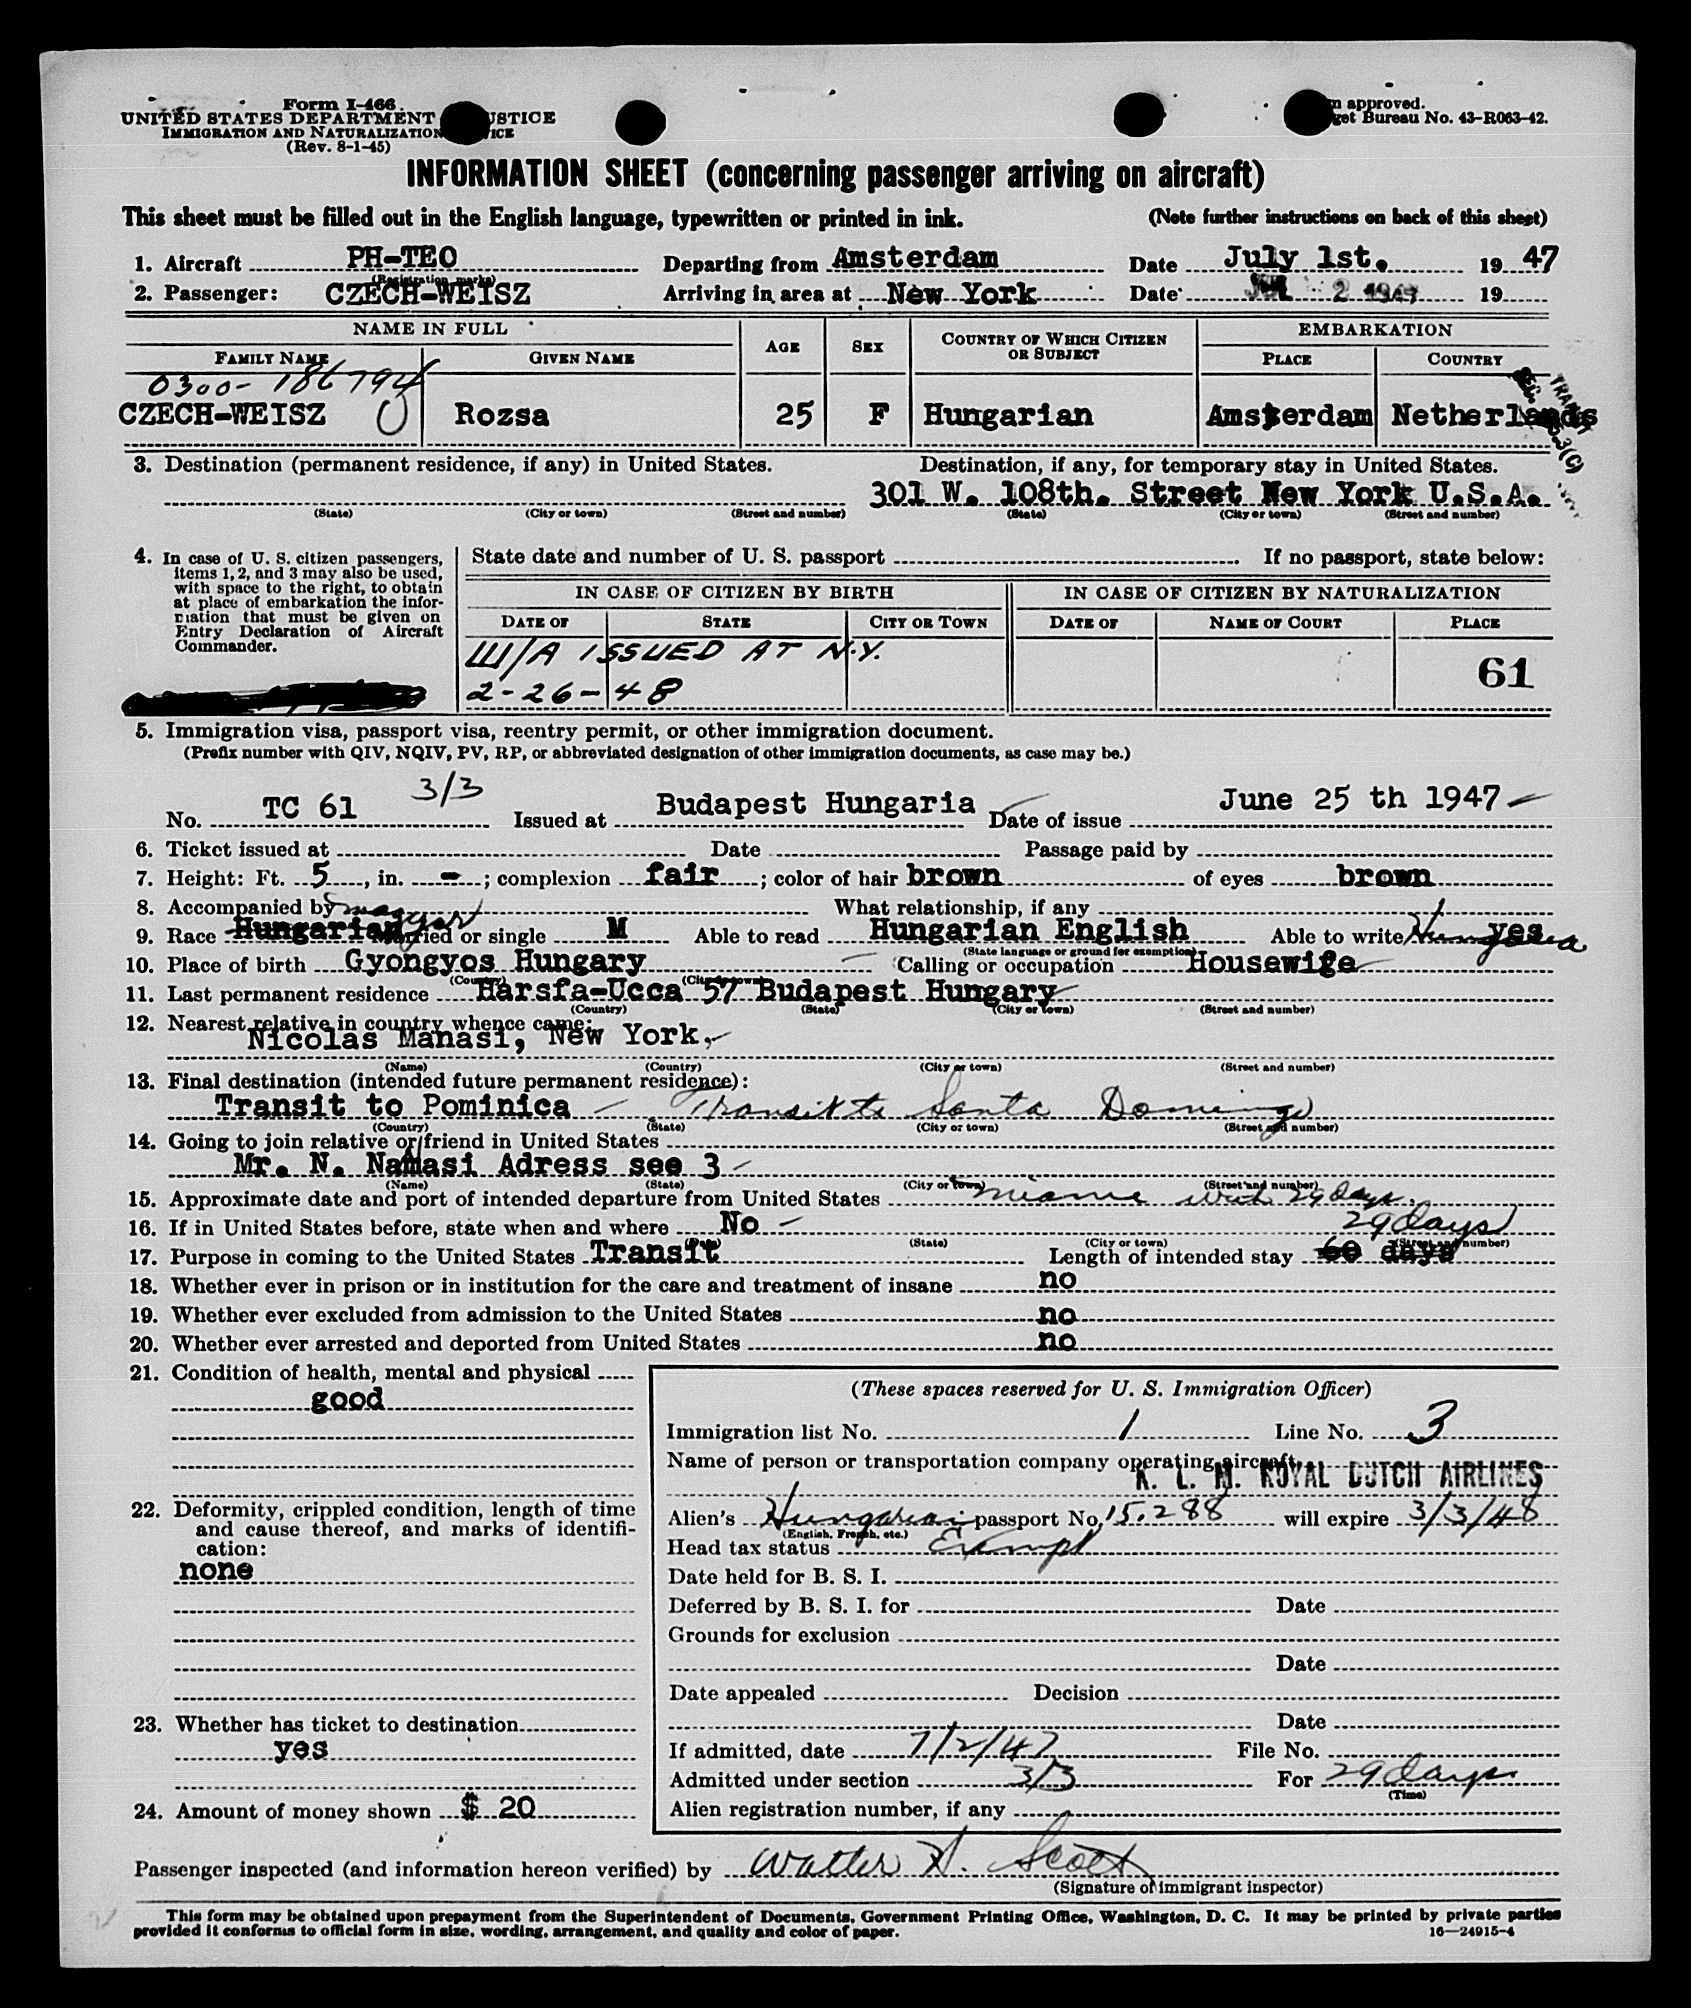 Form I-466
UNITED STATES DEPARTMENT USTICE
IMMIGRATION AND NATURALIZATION ICE
(Rev. 8-1-45)
approved.
get Bureau No. 43-R063-42.
INFORMATION SHEET (concerning passenger arriving on aircraft)
This sheet must be filled out in the English language, typewritten or printed in ink. (Note further instructions on back of this sheet)
1. Aircraft PH-TEO Departing from Amsterdam Date July 1st. 19 47
(Registration marks)
2. Passenger: CZECH-WEISZ Arriving in area at New York Date 2 1947 19
NAME IN FULL AGE SEX COUNTRY OF WHICH CITIZEN OR SUBJECT EMBARKATION
FAMILY NAME GIVEN NAME PLACE COUNTRY
0300-186794
CZECH-WEISZ Rozsa 25 F Hungarian Amsterdam Netherlands
TRANSIT
3(C)
3. Destination (permanent residence, if any) in United States. Destination, if any, for temporary stay in United States.
301 W. 108th. Street New York U.S.A.
(State) (City or town) (Street and number) (State) (City or town) (Street and number)
4. In case of U. S. citizen passengers, items 1, 2, and 3 may also be used, with space to the right, to obtain at place of embarkation the information that must be given on Entry Declaration of Aircraft Commander.
State date and number of U. S. passport If no passport, state below:
IN CASE OF CITIZEN BY BIRTH IN CASE OF CITIZEN BY NATURALIZATION
DATE OF STATE CITY OR TOWN DATE OF NAME OF COURT PLACE
W/A ISSUED AT N.Y.
2-26-48
61
5. Immigration visa, passport visa, reentry permit, or other immigration document.
(Prefix number with QIV, NQIV, PV, RP, or abbreviated designation of other immigration documents, as case may be.)
No. TC 61 3/3 Issued at Budapest Hungaria Date of issue June 25 th 1947
6. Ticket issued at Date Passage paid by
7. Height: Ft. 5, in. -; complexion fair; color of hair brown of eyes brown
8. Accompanied by What relationship, if any
magyar
9. Race Hungarian Married or single M Able to read Hungarian English Able to write yes
(State language or ground for exemption)
10. Place of birth Gyongyos Hungary Calling or occupation Housewife
(Country) (City or town)
11. Last permanent residence Harsfa-Ucca 57 Budapest Hungary
(Country) (State) (City or town) (Street and number)
12. Nearest relative in country whence came:
Nicolas Manasi, New York,
(Name) (Country) (City or town) (Street and number)
13. Final destination (intended future permanent residence):
Transit to Pominica Transit to Santa Domingo
(Country) (State) (City or town) (Street and number)
14. Going to join relative or friend in United States
Mr. N. Namasi Adress see 3
(Name) (State) (City or town) (Street and number)
15. Approximate date and port of intended departure from United States Miami with 29 days.
16. If in United States before, state when and where No
29 days
(State) (City or town) (Street and number)
17. Purpose in coming to the United States Transit Length of intended stay 60 days
18. Whether ever in prison or in institution for the care and treatment of insane no
19. Whether ever excluded from admission to the United States no
20. Whether ever arrested and deported from United States no
21. Condition of health, mental and physical
good
22. Deformity, crippled condition, length of time and cause thereof, and marks of identification:
none
23. Whether has ticket to destination
yes
24. Amount of money shown $ 20
(These spaces reserved for U. S. Immigration Officer)
Immigration list No. 1 Line No. 3
Name of person or transportation company operating aircraft
K. L. M. ROYAL DUTCH AIRLINES
Alien's Hungarian passport No. 15.288 will expire 3/3/48
(English, French, etc.)
Head tax status Exempt
Date held for B. S. I.
Deferred by B. S. I. for Date
Grounds for exclusion
Date
Date appealed Decision
Date
If admitted, date 7/2/47 File No.
Admitted under section 3/3 For 29 days
(Time)
Alien registration number, if any
Passenger inspected (and information hereon verified) by Walter A. Scott
(Signature of immigrant inspector)
This form may be obtained upon prepayment from the Superintendent of Documents, Government Printing Office, Washington, D. C. It may be printed by private parties
provided it conforms to official form in size, wording, arrangement, and quality and color of paper.
16—24915-4